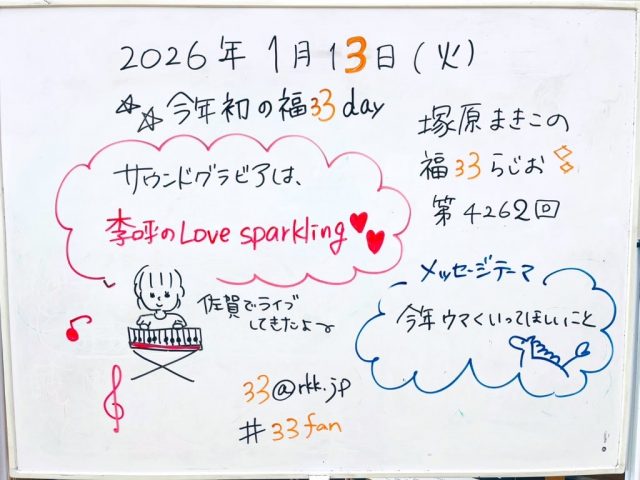 2026年1月13日(火)
☆☆今年初の福33day
塚原まきこの
福33らじお
第4262回
サウンドグラビアは、
李呼のLove sparkling
佐賀でライブ
してきたよ〜
メッセージテーマ
今年ウマくいってほしいこと
33@rkk.jp
#33fan